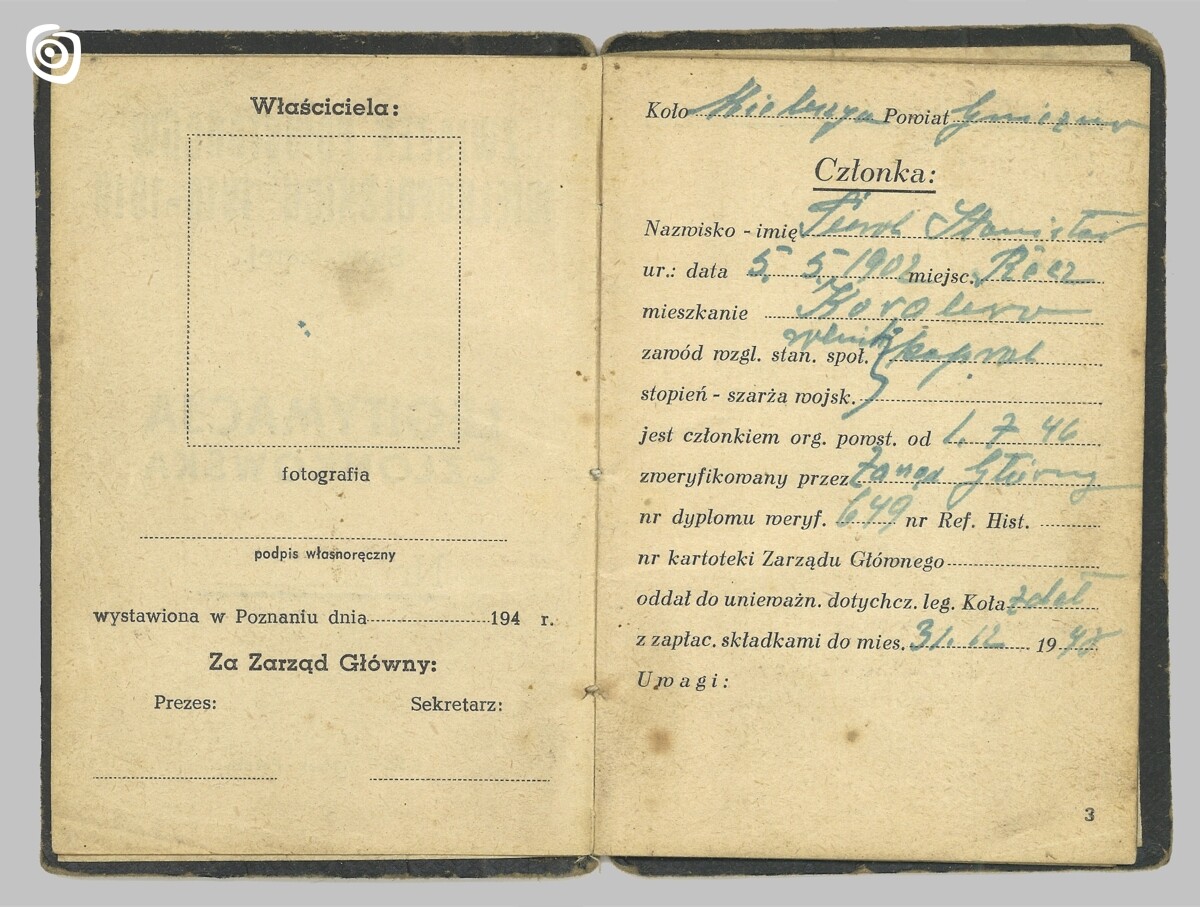 Właściciela:
fotografia
podpis własnoręczny
wystawiona w Poznaniu dnia 194 r.
Za Zarząd Główny:
Prezes: Sekretarz:
Koło Powiat Gniezno
Członka:
Nazwisko - imię Stanisław
ur.: data 5. 5. 1902 miejsc.
mieszkanie
rolnik
zawód wzgl. stan. społ. kapral
stopień - szarża wojsk.
jest członkiem org. powst. od 1. 7 46
zweryfikowany przez Zarząd Główny
nr dyplomu weryf. 649 nr Ref. Hist.
nr kartoteki Zarządu Głównego
oddał do unieważn. dotychcz. leg. Koła zdał
z zapłac. składkami do mies. 31. 12 19
Uwagi:
3